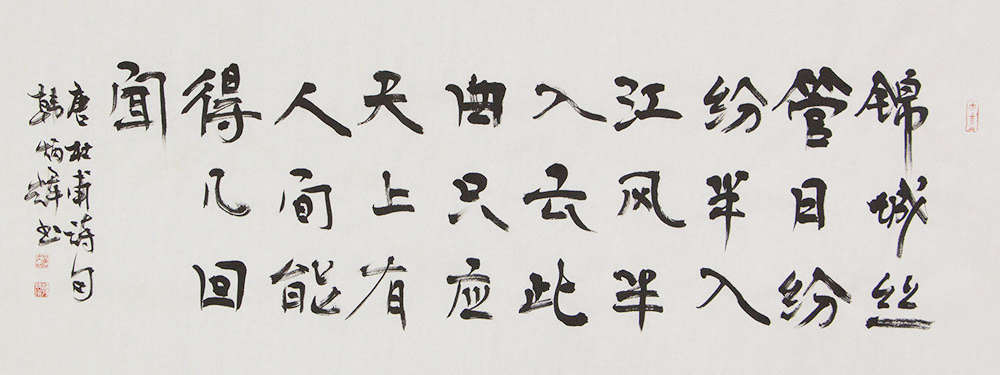 锦城丝
管目纷
纷半入
江风半
入云此
曲只应
天上有
人间能
得几回
闻
唐杜甫诗句
韩炳辉书